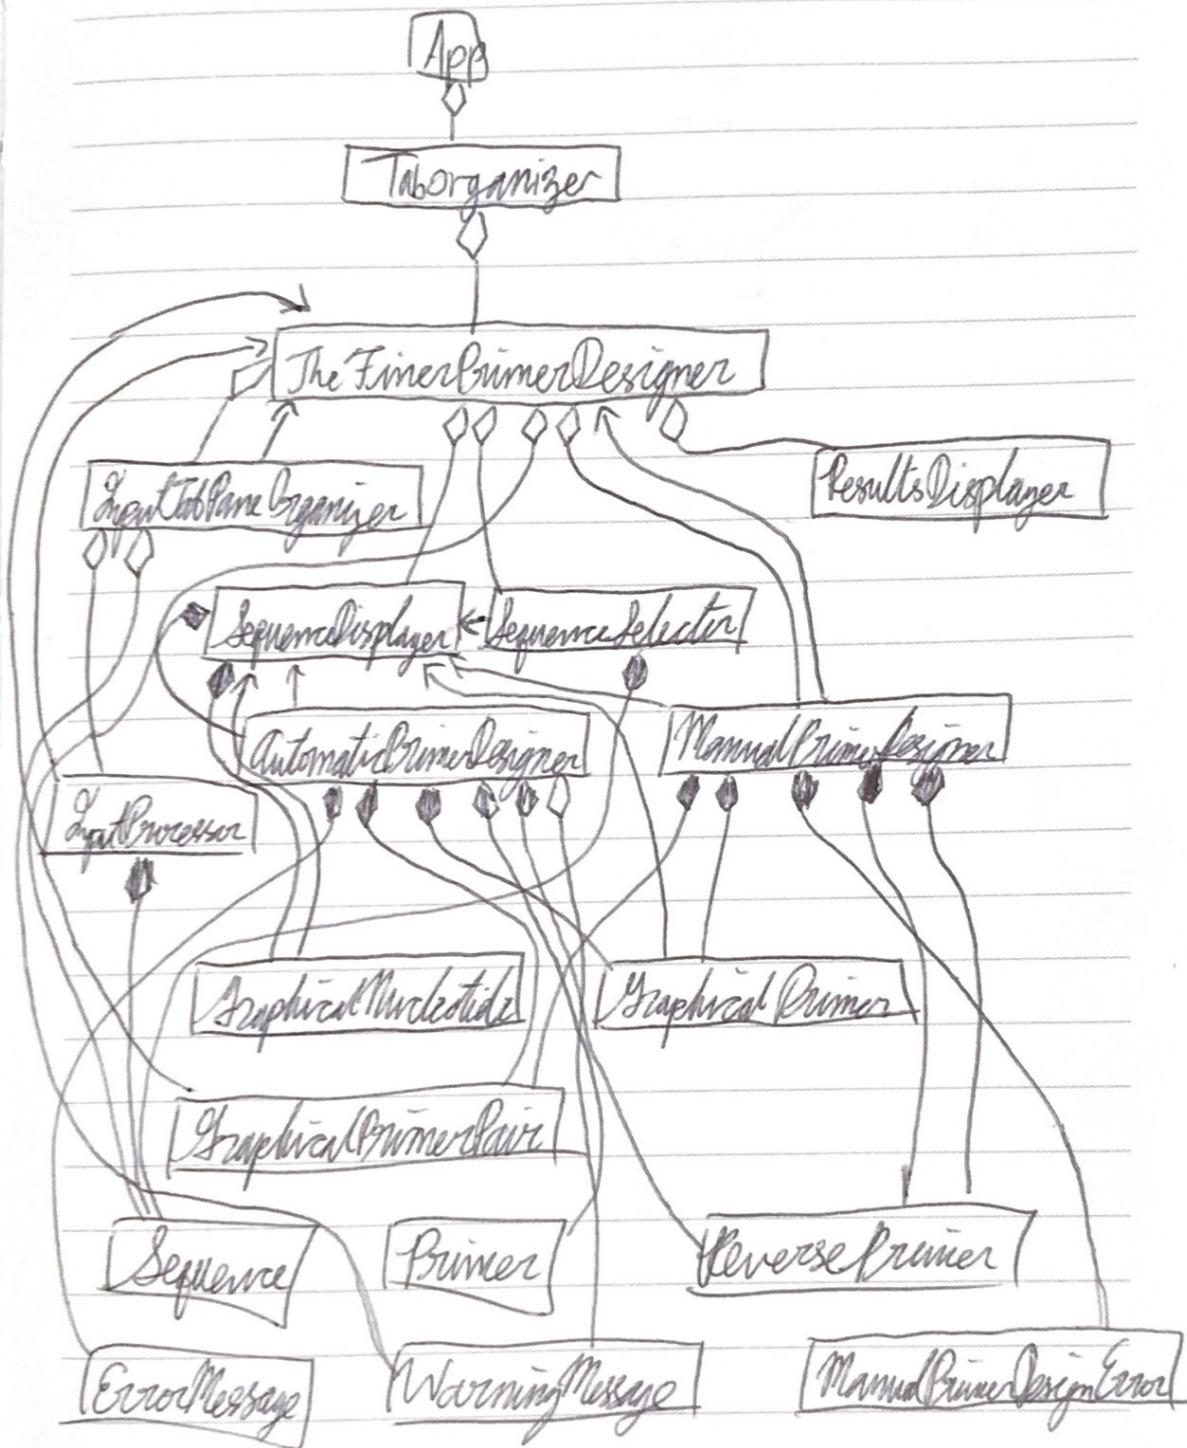 App
Taborganizer
TheFinerPrimerDesigner
InputTabPaneOrganizer
ResultsDisplayer
SequenceDisplayer
SequenceSelector
AutomaticPrimerDesigner
ManualPrimerDesigner
InputProcessor
GraphicalNucleotide
GraphicalPrimer
GraphicalPrimerPair
Sequence
Primer
ReversePrimer
ErrorMessage
WarningMessage
ManualPrimerDesignError